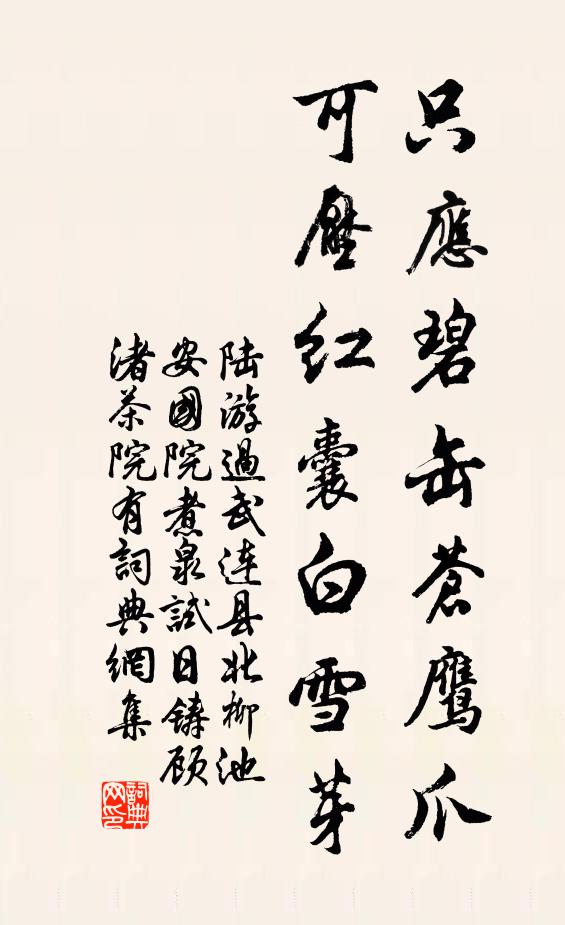 只應碧缶蒼鷹爪
可壓紅囊白雪芽
陆游過武连县北柳池
安國院煮泉試日鑄顾
渚茶院有詞典網集
詞典网印